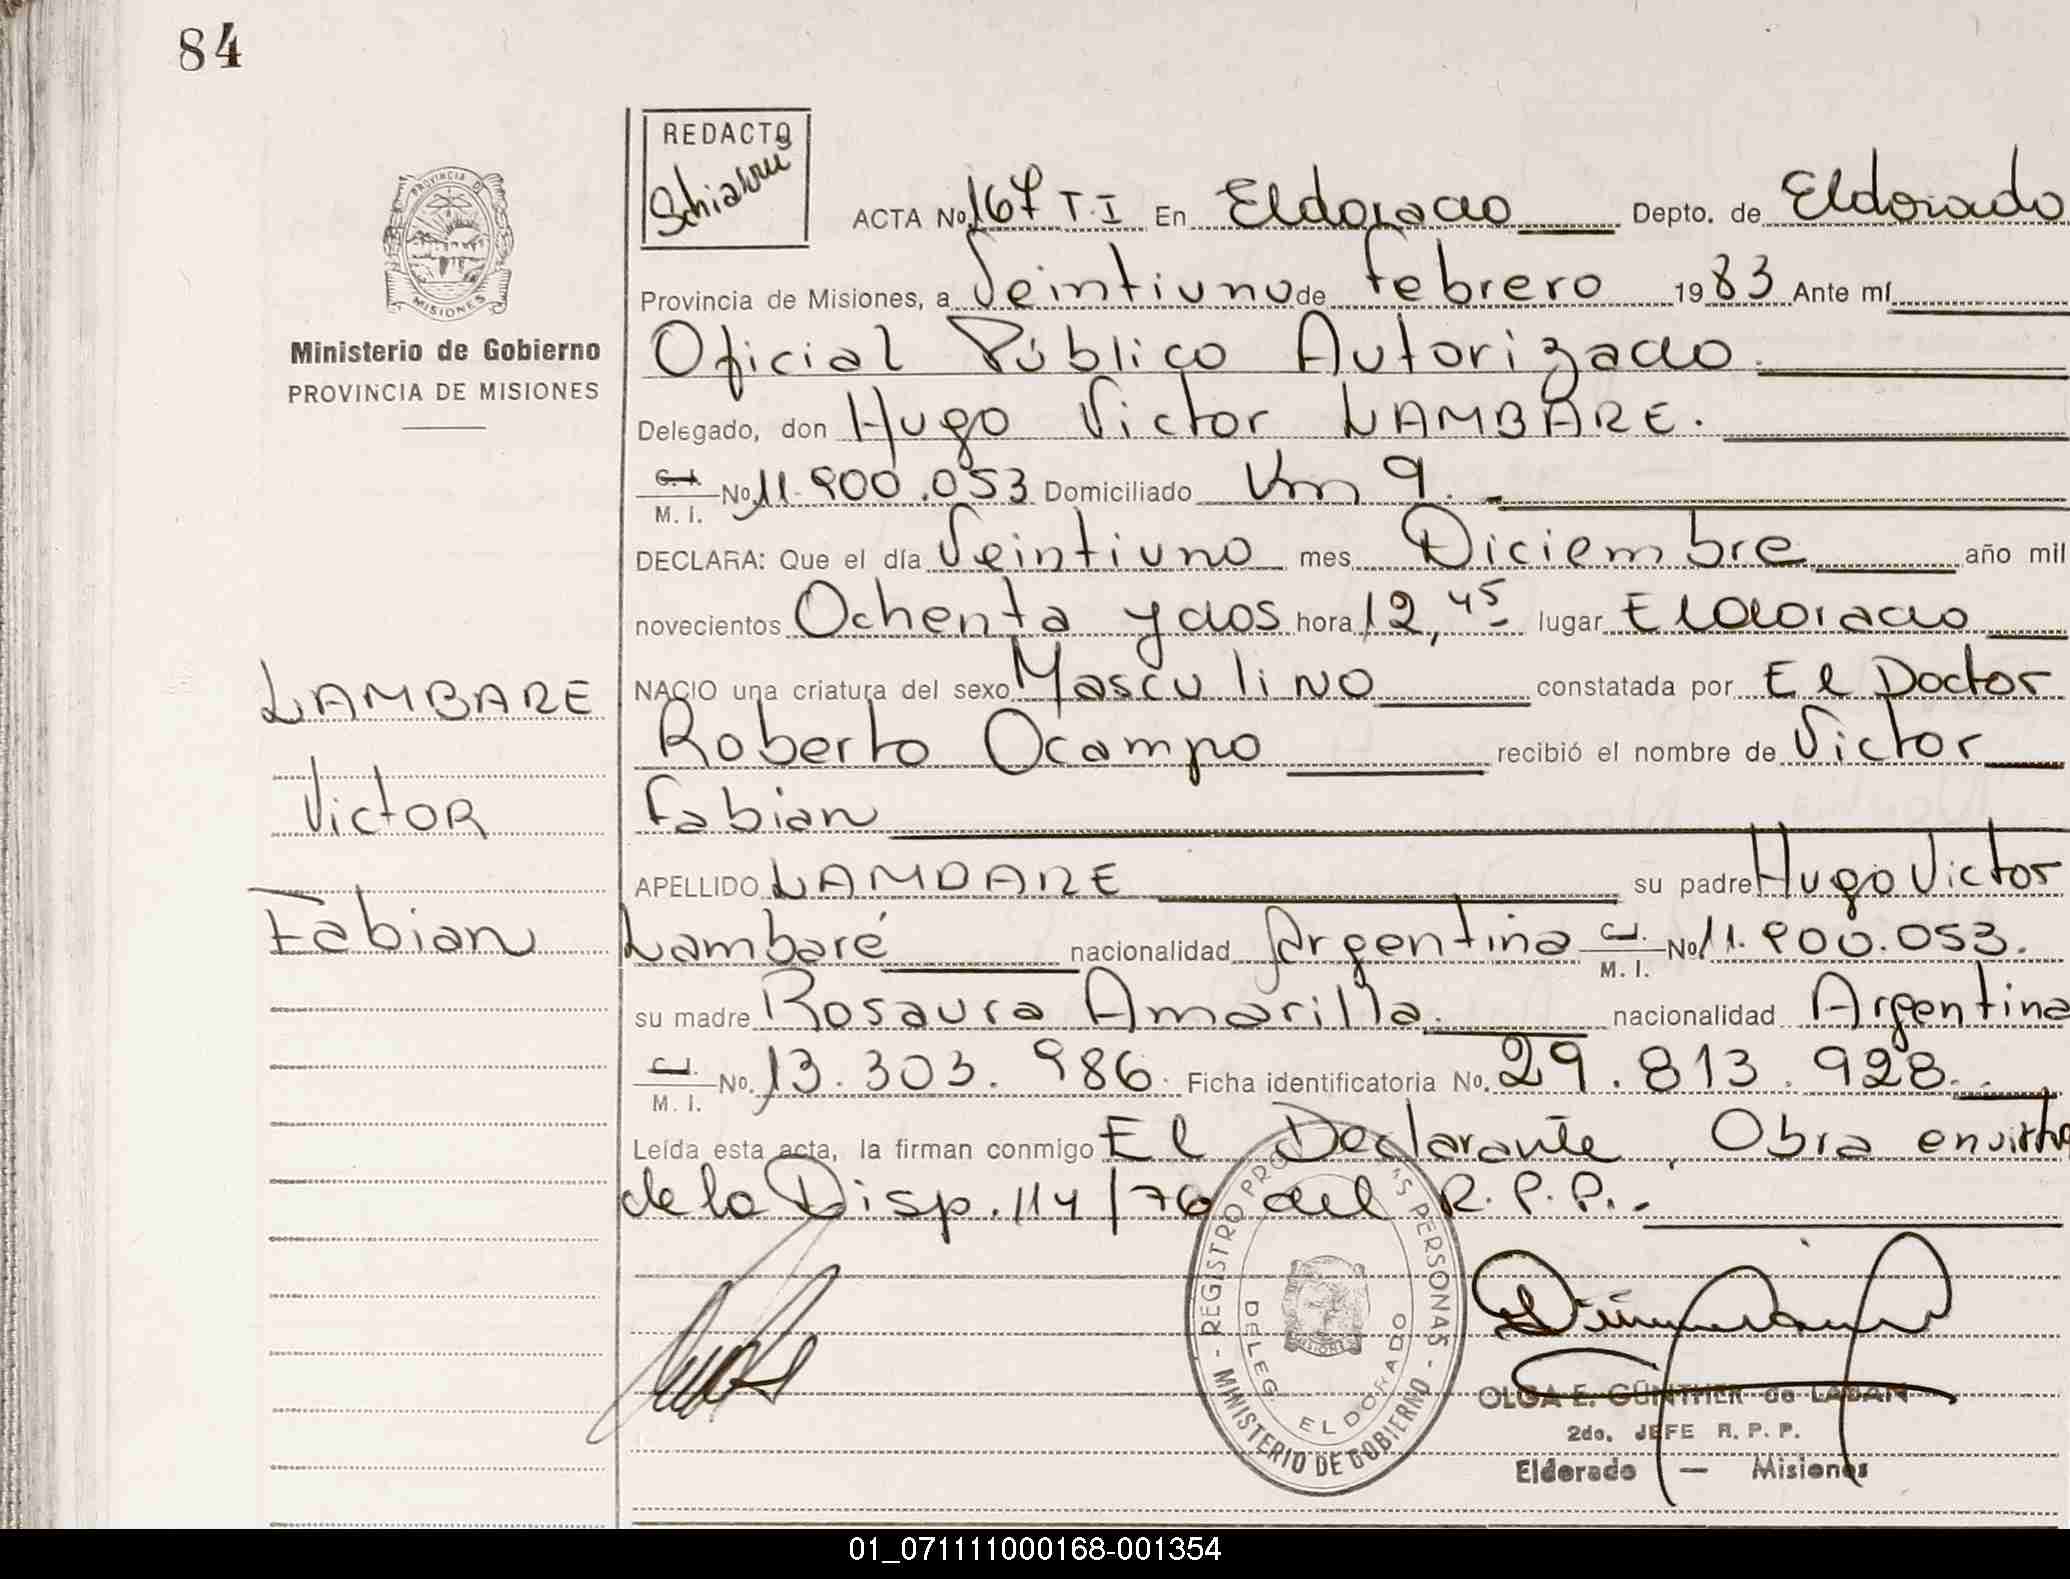 84
REDACTO
PROVINCIA DE
MISIONES
Ministerio de Gobierno
PROVINCIA DE MISIONES
LAMBARE
Victor
Fabian
ACTA No 167 T.I En Eldorado Depto. de Eldorado
Provincia de Misiones, a Veintiuno de Febrero 1983 Ante mí
Oficial Público Autorizado.
Delegado, don Hugo Victor LAMBARE.
C.I. M. I. No 11.900.053 Domiciliado Km 9.
DECLARA: Que el día Veintiuno mes Diciembre año mil
novecientos Ochenta y dos hora 12,45 lugar Eldorado
NACIO una criatura del sexo Masculino constatada por El Doctor
Roberto Ocampo recibió el nombre de Victor
Fabian
APELLIDO LAMBARE su padre Hugo Victor
Lambaré nacionalidad Argentina C.I. M. I. No 11.900.053.
su madre Rosaura Amarilla. nacionalidad Argentina
C.I. M. I. No. 13.303.986. Ficha identificatoria No. 29.813.928.
Leída esta acta, la firman conmigo El Declarante, Obra en virtud
de la Disp. 114/76 del R.P.P.
REGISTRO PRO AS PERSONAS - MINISTERIO DE GOBIERNO -
DELEG. ELDORADO
MISIONES
OLGA E. GÜNTHER de LABAN
2do. JEFE R. P. P.
Eldorado — Misiones
01_071111000168-001354